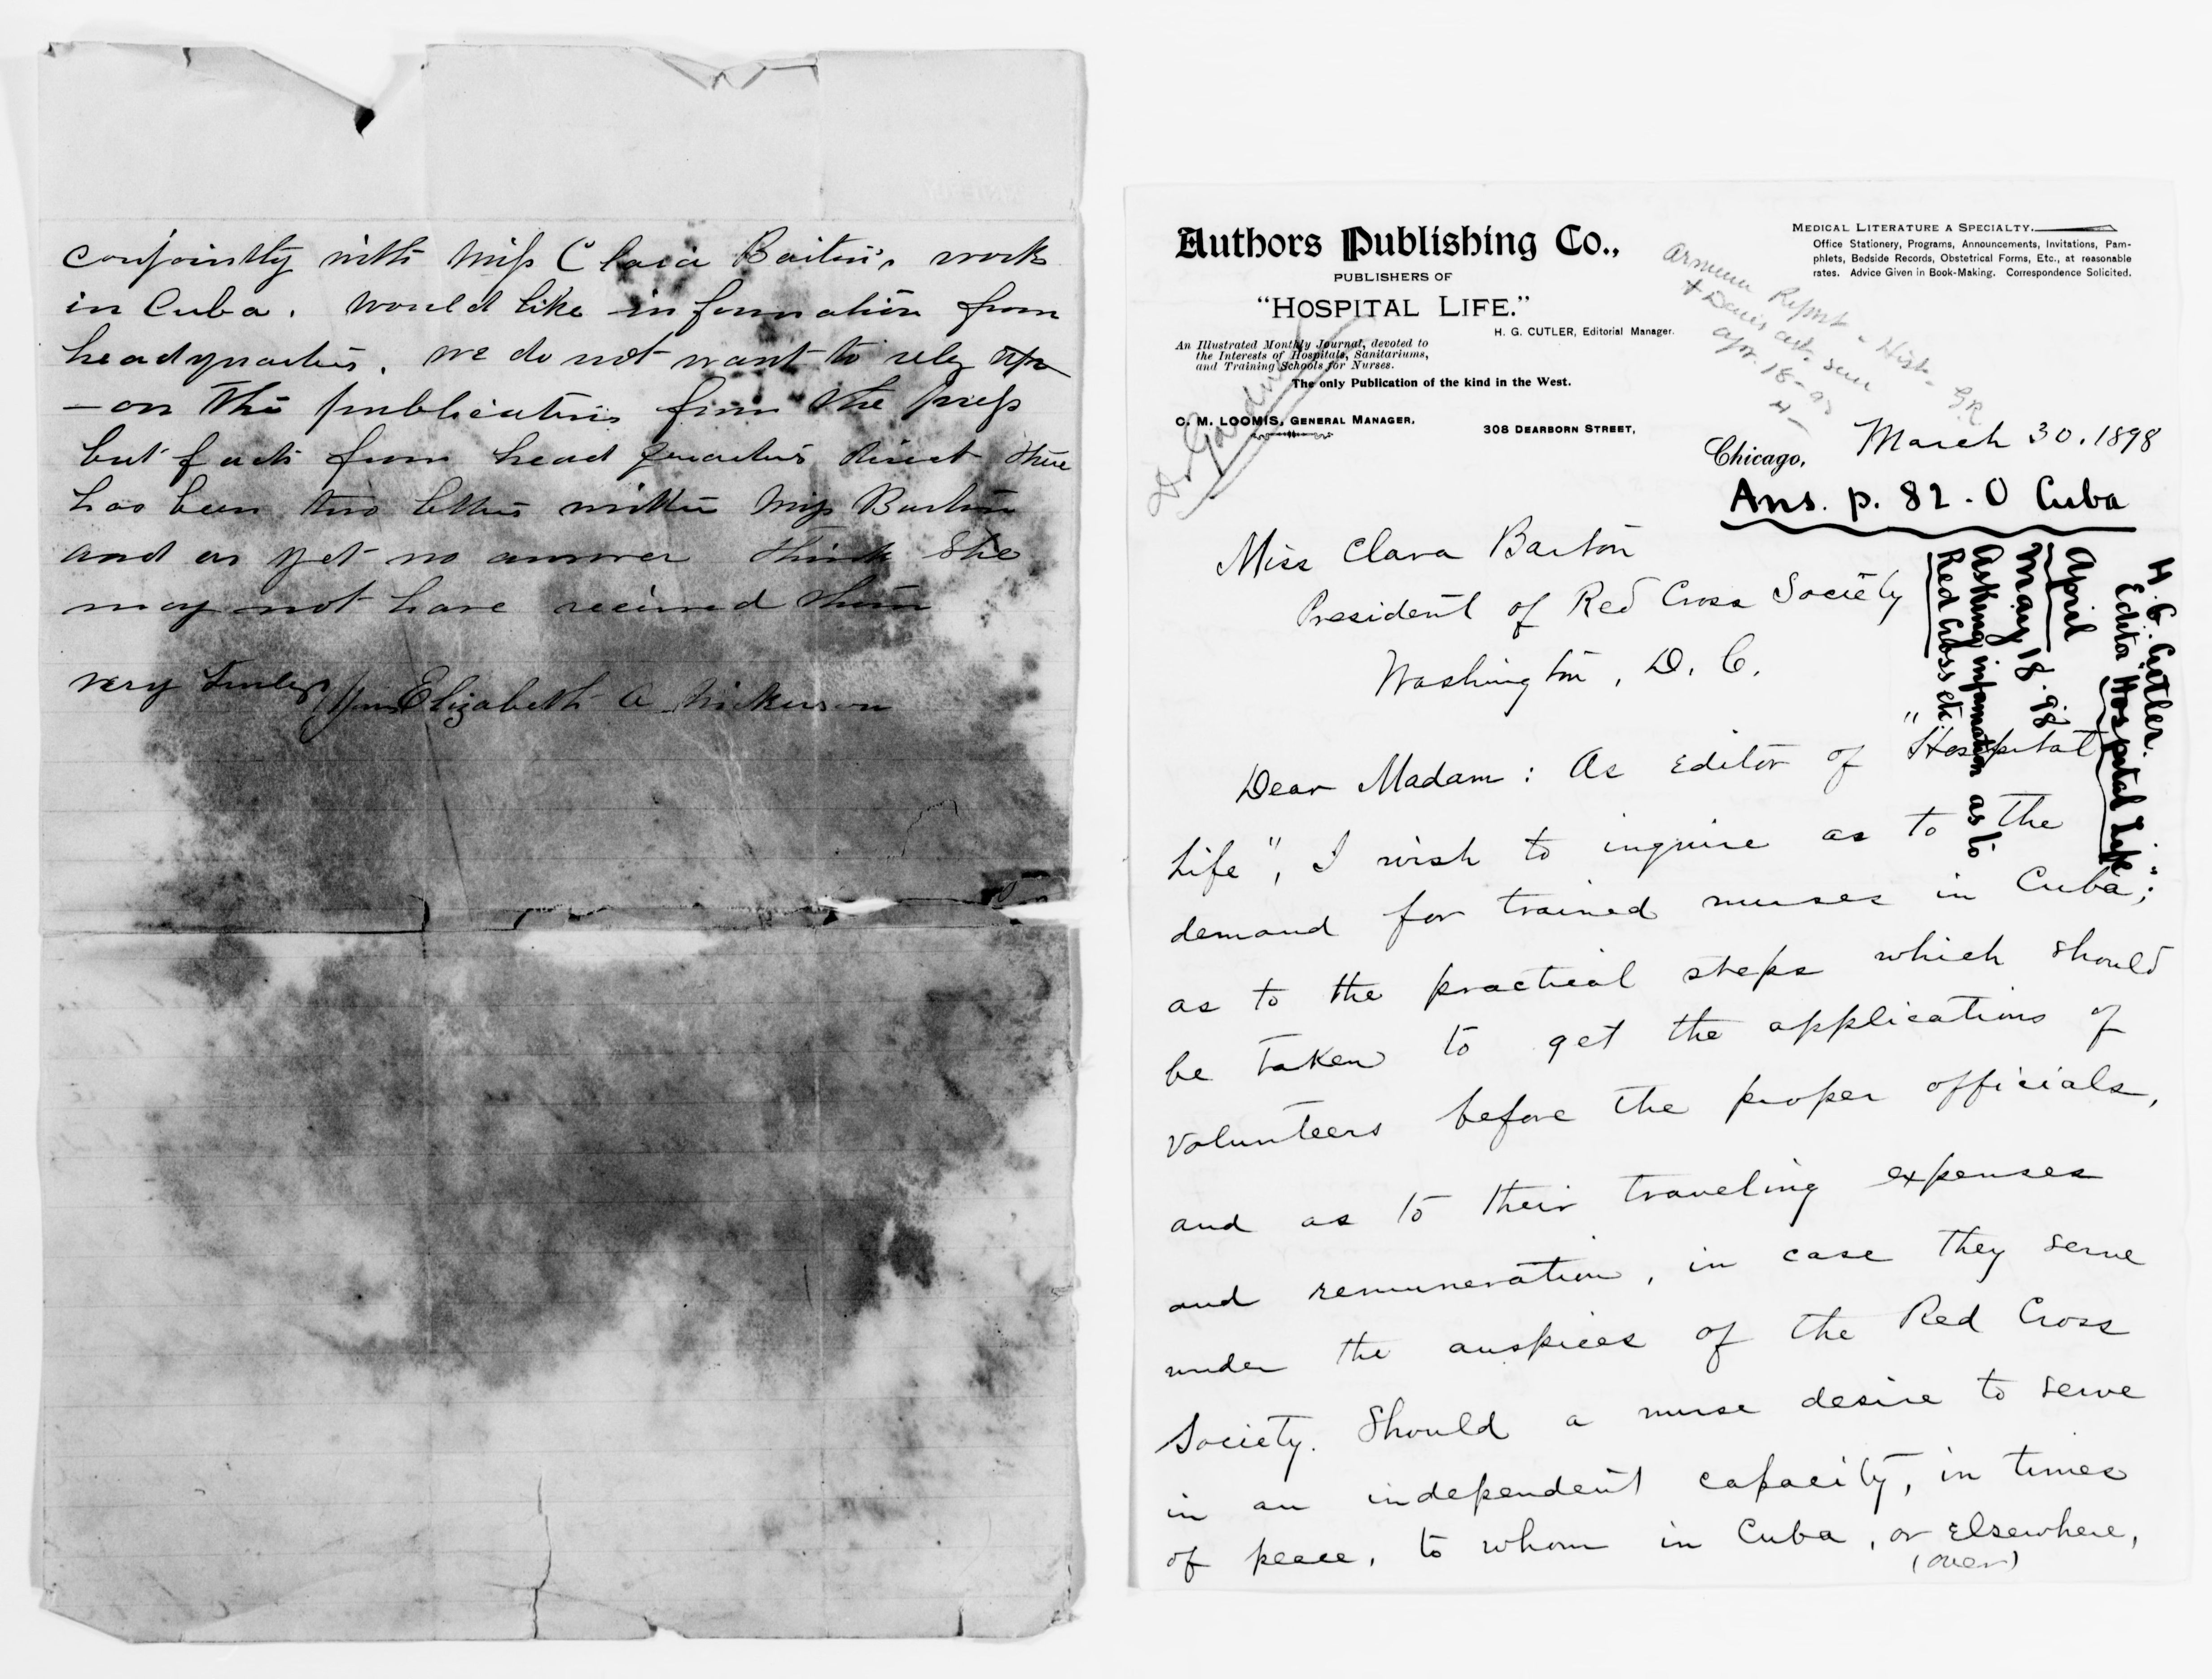 conjointly with Miss Clara Barton's work
in Cuba. would like information from
headquarters. we do not want to rely up
-on the publications from the press
but facts from head quarters direct there
has been two letters written Miss Barton
and as yet no answer think she
may not have received them
very truly Elizabeth A Nickerson
Authors Publishing Co.,
PUBLISHERS OF
"HOSPITAL LIFE."
H. G. CUTLER, Editorial Manager.
An Illustrated Monthly Journal, devoted to
the Interests of Hospitals, Sanitariums,
and Training Schools for Nurses.
The only Publication of the kind in the West.
C. M. LOOMIS, GENERAL MANAGER.
308 DEARBORN STREET,
MEDICAL LITERATURE A SPECIALTY.
Office Stationery, Programs, Announcements, Invitations, Pam-
phlets, Bedside Records, Obstetrical Forms, Etc., at reasonable
rates. Advice Given in Book-Making. Correspondence Solicited.
Report - Hist. G.R.
Apr. 18-98
Dr Gardner
Chicago, March 30, 1898
Ans. p. 82 - O Cuba
H. G. Cutler.
Editor "Hospital Life"
April
May 18.98
Asking information as to
Red Cross etc.
Miss Clara Barton
President of Red Cross Society
Washington, D. C.
Dear Madam: As Editor of "Hospital
Life", I wish to inquire as to the
demand for trained nurses in Cuba;
as to the practical steps which should
be taken to get the applications of
volunteers before the proper officials,
and as to their traveling expenses
and remuneration, in case they serve
under the auspices of the Red Cross
Society. Should a nurse desire to serve
in an independent capacity, in times
of peace, to whom in Cuba, or Elsewhere,
(over)